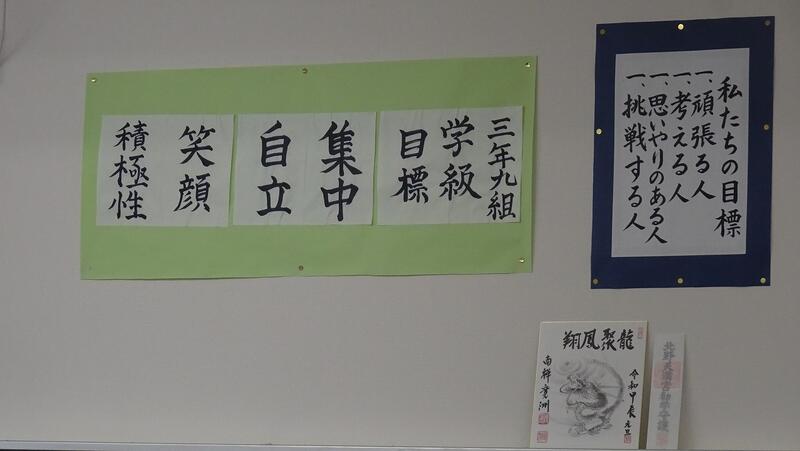 三年九組
学級
目標
集中
自立
笑顔
積極性
私たちの目標
一、頑張る人
一、考える人
一、思いやりのある人
一、挑戦する人
龍聚鳳翔
令和甲辰元旦